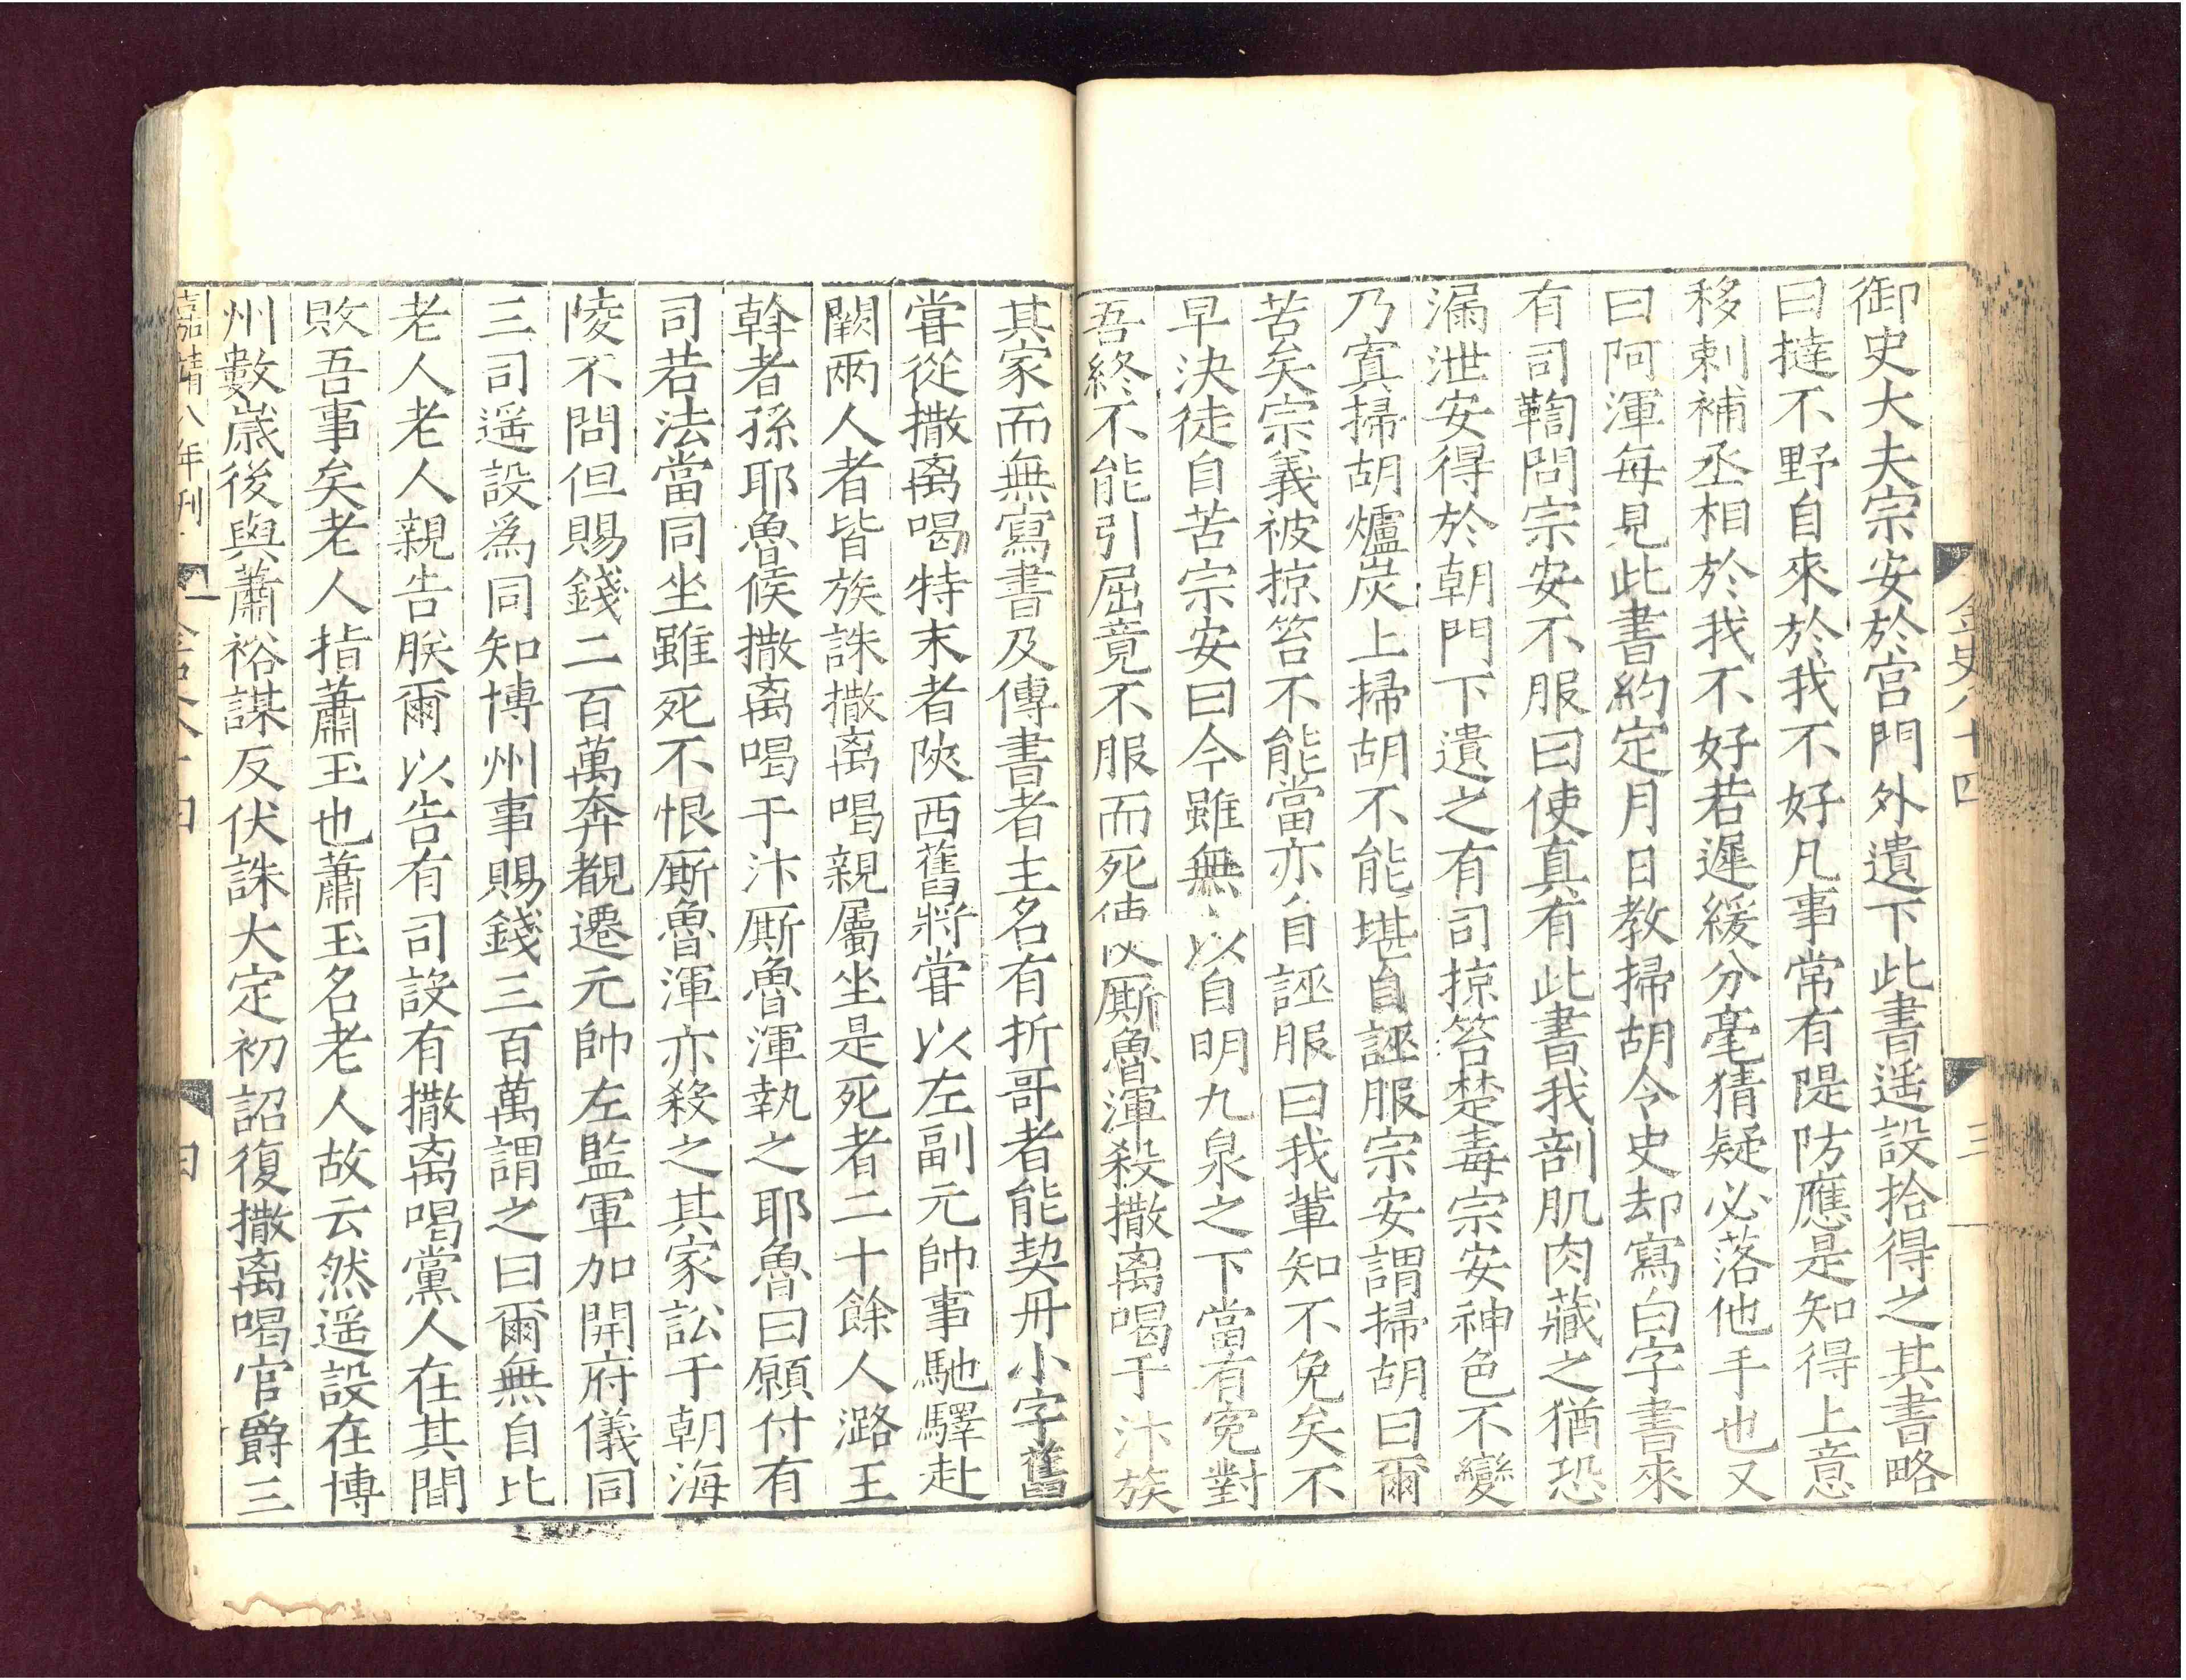 金史八十四
三
御史大夫宗安於宫門外遺下此書遥設拾得之其書略
曰撻不野自來於我不好凡事常有隄防應是知得上意
移剌補丞相於我不好若遲緩分毫猜疑必落他手也又
曰阿渾每見此書約定月日教掃胡令史却寫白字書來
有司鞫問宗安不服曰使真有此書我剖肌肉藏之猶恐
漏泄安得於朝門下遺之有司掠笞楚毒宗安神色不變
乃寘掃胡爐炭上掃胡不能堪自誣服宗安謂掃胡曰爾
苦矣宗義被掠笞不能當亦自誣服曰我輩知不免矣不
早決徒自苦宗安曰今雖無以自明九泉之下當有寃對
吾終不能引屈竟不服而死使厮魯渾殺撒离喝于汴族
其家而無寫書及傳書者主名有折哥者能契丹小字舊
甞從撒离喝特末者陜西舊將甞以左副元帥事馳驛赴
闕兩人者皆族誅撒离喝親屬坐是死者二十餘人潞王
幹者孫耶魯候撒离喝于汴厮魯渾執之耶魯曰願付有
司若法當同坐雖死不恨厮魯渾亦殺之其家訟于朝海
陵不問但賜錢二百萬奔覩遷元帥左監軍加開府儀同
三司遥設爲同知博州事賜錢三百萬謂之曰爾無自比
老人老人親告朕爾以告有司設有撒离喝黨人在其間
敗吾事矣老人指蕭玉也蕭玉名老人故云然遥設在博
州數嵗後與蕭裕謀反伏誅大定初詔復撒离喝官爵三
嘉靖八年刊